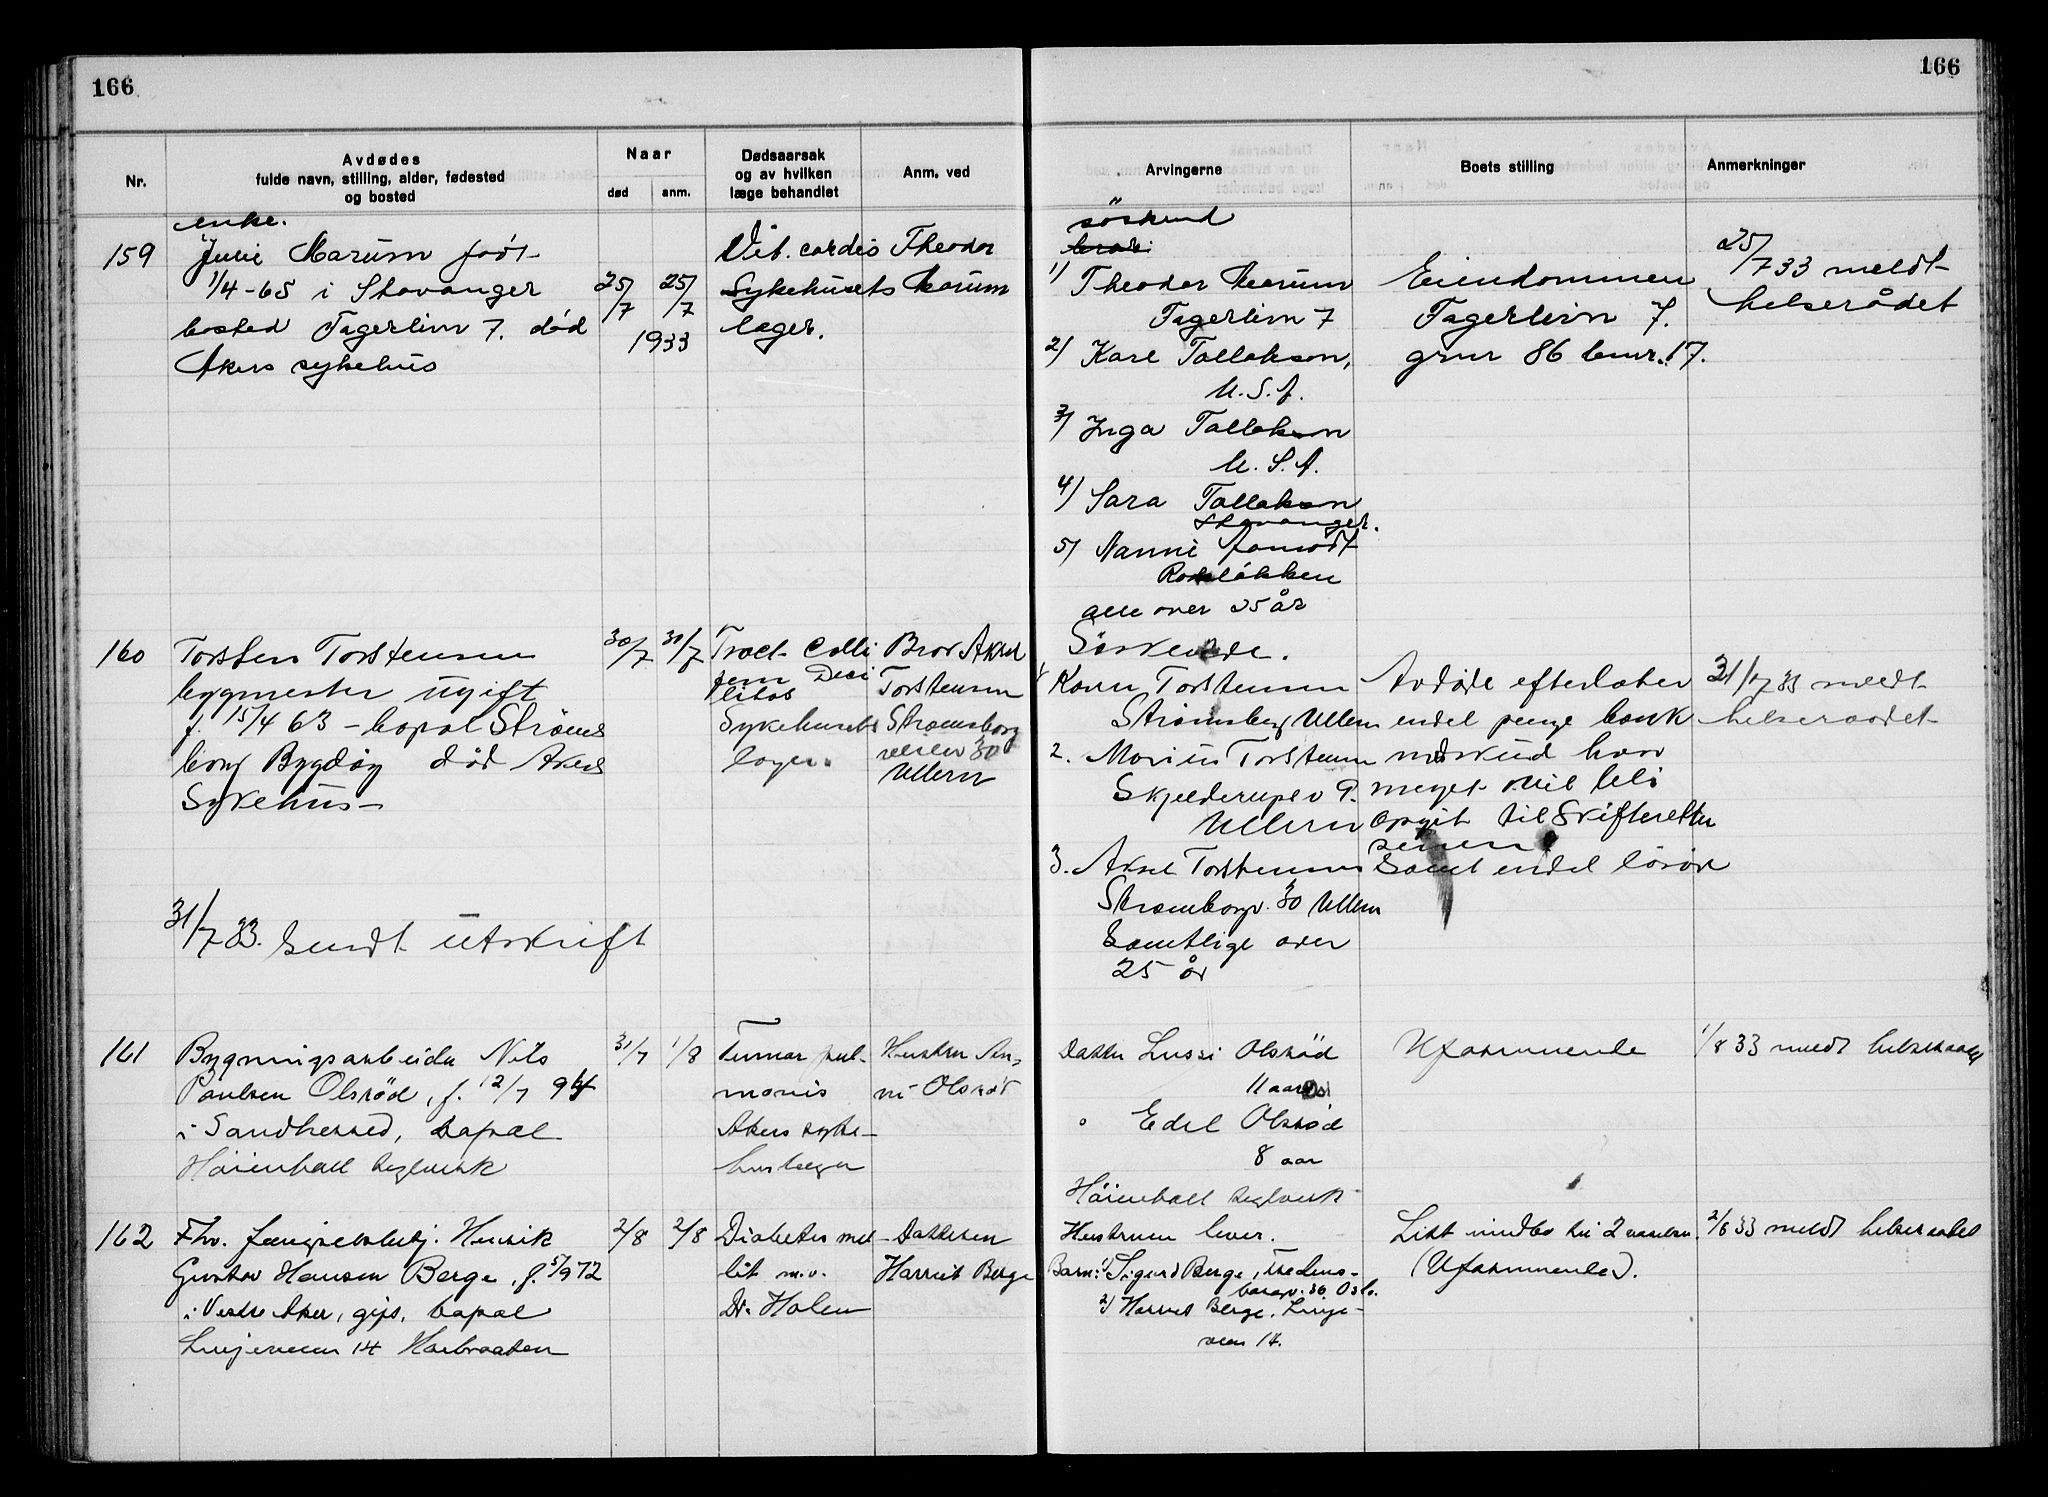 166
166
Nr.
Avdødes
fulde navn, stilling, alder, fødested
og bosted
Naar
død
anm.
Dødsaarsak
og av hvilken
læge behandlet
Anm. ved
Arvingerne
Boets stilling
Anmerkninger
159
enke.
Julie Marum født
1/4-65 i Stavanger
bosted Fagerlivn 7. død
Akers sykehus
25/7
25/7
1933
Vit. cordis
Sykehusets
læger.
Theodor
Marum
søskend
1) Theodor Marum
Fagerlivn 7
2) Karl Tallakson,
U.S.A.
3) Inga Tallakson
U.S.A.
4) Sara Tallakson
Stavanger.
5) Nanni
Rodeløkken
alle over 25 år
Eiendommen
Fagerlivn 7.
gnr 86 bnr. 17.
25/7 33 meldt
helserådet
160
Torsten Torstensen
bygmester ugift
f. 15/4 63 - bopæl Strøms
borg Bygdøy død Akers
Sykehus
31/7 33. Sendt utskrift
30/7
30/7
Fract. Colli
fem Deci
litos
Sykehusets
læger.
Bror Aksel
Torstensen
Strømsborg
veien 30
Ullern
Søskende.
1 Karen Torstensen
Strømsborg Ullern
2. Marius Torstensen
Skjelderups v 9.
Ullern
3. Aksel Torstensen
Strømborgv. 30 Ullern
Samtlige over
25 år
Avdøde efterlater
endel penge bank
innskud hvor
meget vil bli
opgit til Skifteretten
senere
samt endel løsøre
31/7 33 meldt
helseraadet
161
Bygningsarbeider Nils
Paulsen Olsrød, f. 12/7 94
i Sandherred, bopæl
Høienhall teglverk
31/7
1/8
Tumor pul-
monis
Akers syke-
huslæger
Hustru An-
ni Olsrød
Datter Lussi Olsrød
11 aar
" Edel Olsrød
8 aar
Høienhall teglverk
Uformuende
1/8 33 meldt helseraadet
162
Fhv. fængselsbetj. Henrik
Gustav Hansen Berge, f. 5/9 72
i Vestre Aker, gift, bopæl
Linjeveien 14 Havbraaten
2/8
2/8
Diabetes mel-
lit m.v.
Dr. Holen
Datteren
Harriet Berge
Hustruen lever.
Barn: 1) Sigurd Berge, Fredens-
borgv. 36 Oslo.
2) Harriet Berge, Linje-
veien 14.
Litt indbo til 2 værelser.
(Uformuende).
2/8 33 meldt helseraadet